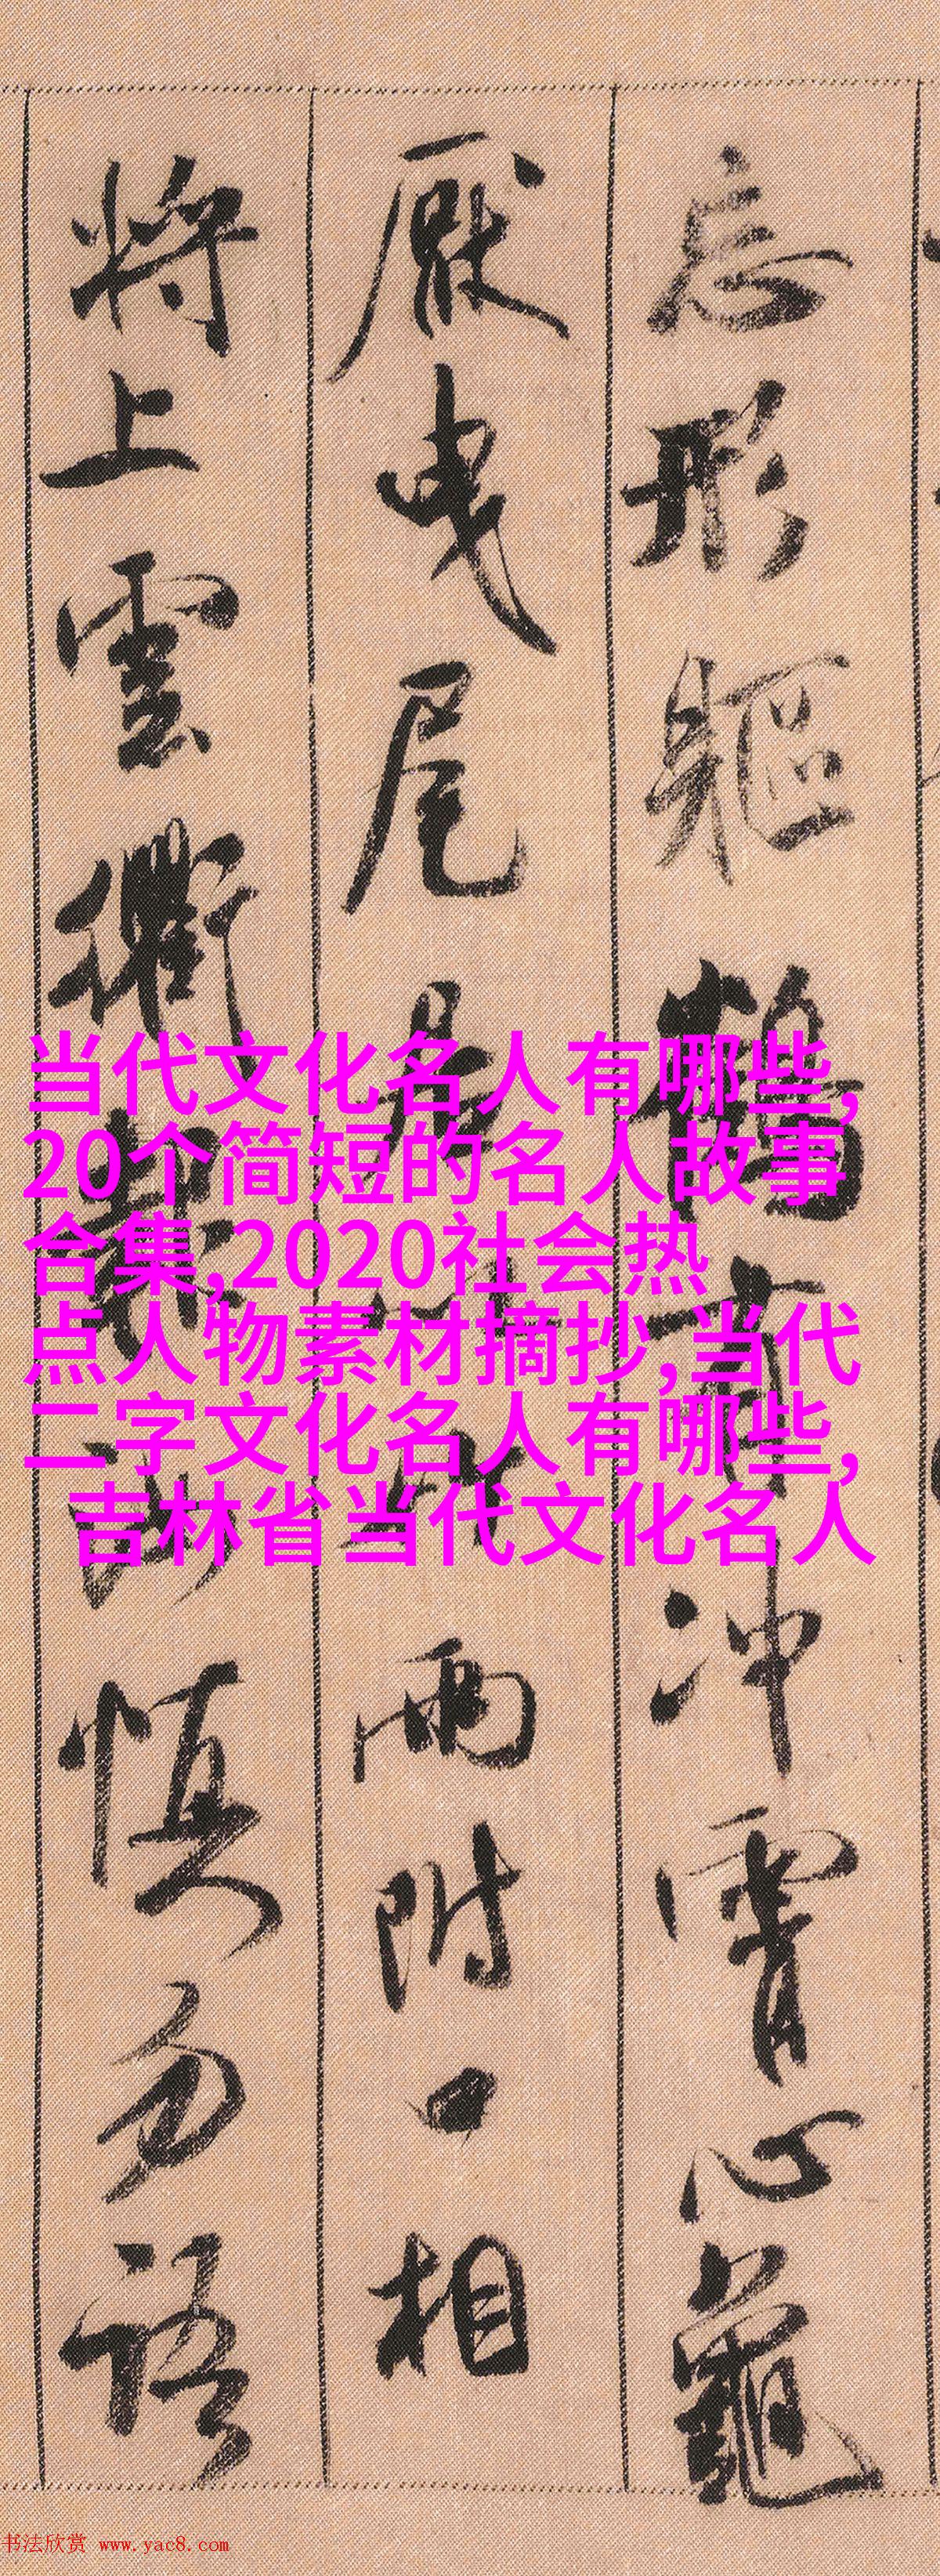 忘形軀鶴有冲霄心龜
厭曳尾居以竹兩附口相
將上雲衢報汝慎勿語
当代文化名人有哪些,
20个简短的名人故事
合集,2020社会热
点人物素材摘抄,当代
二字文化名人有哪些,
吉林省当代文化名人
书法欣赏 www.yac8.com